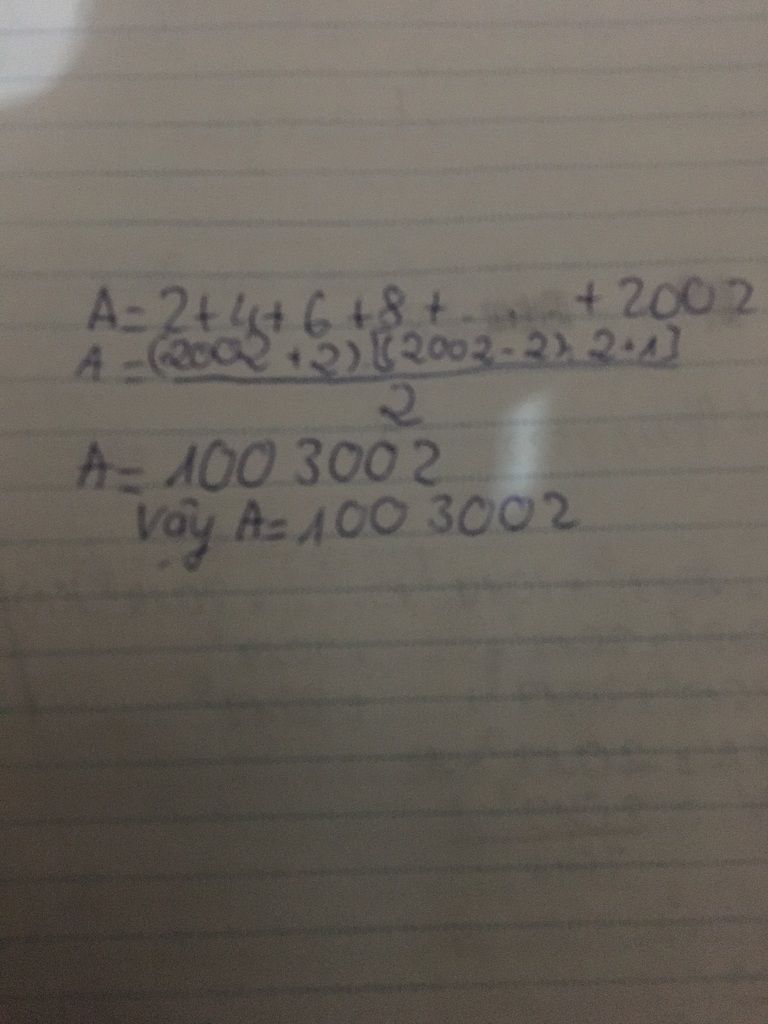 A = 2 + 4 + 6 + 8 + ....... + 2002
A = (2002 + 2) [(2002 - 2) : 2 + 1]
2
A = 100 3002
Vậy A = 100 3002